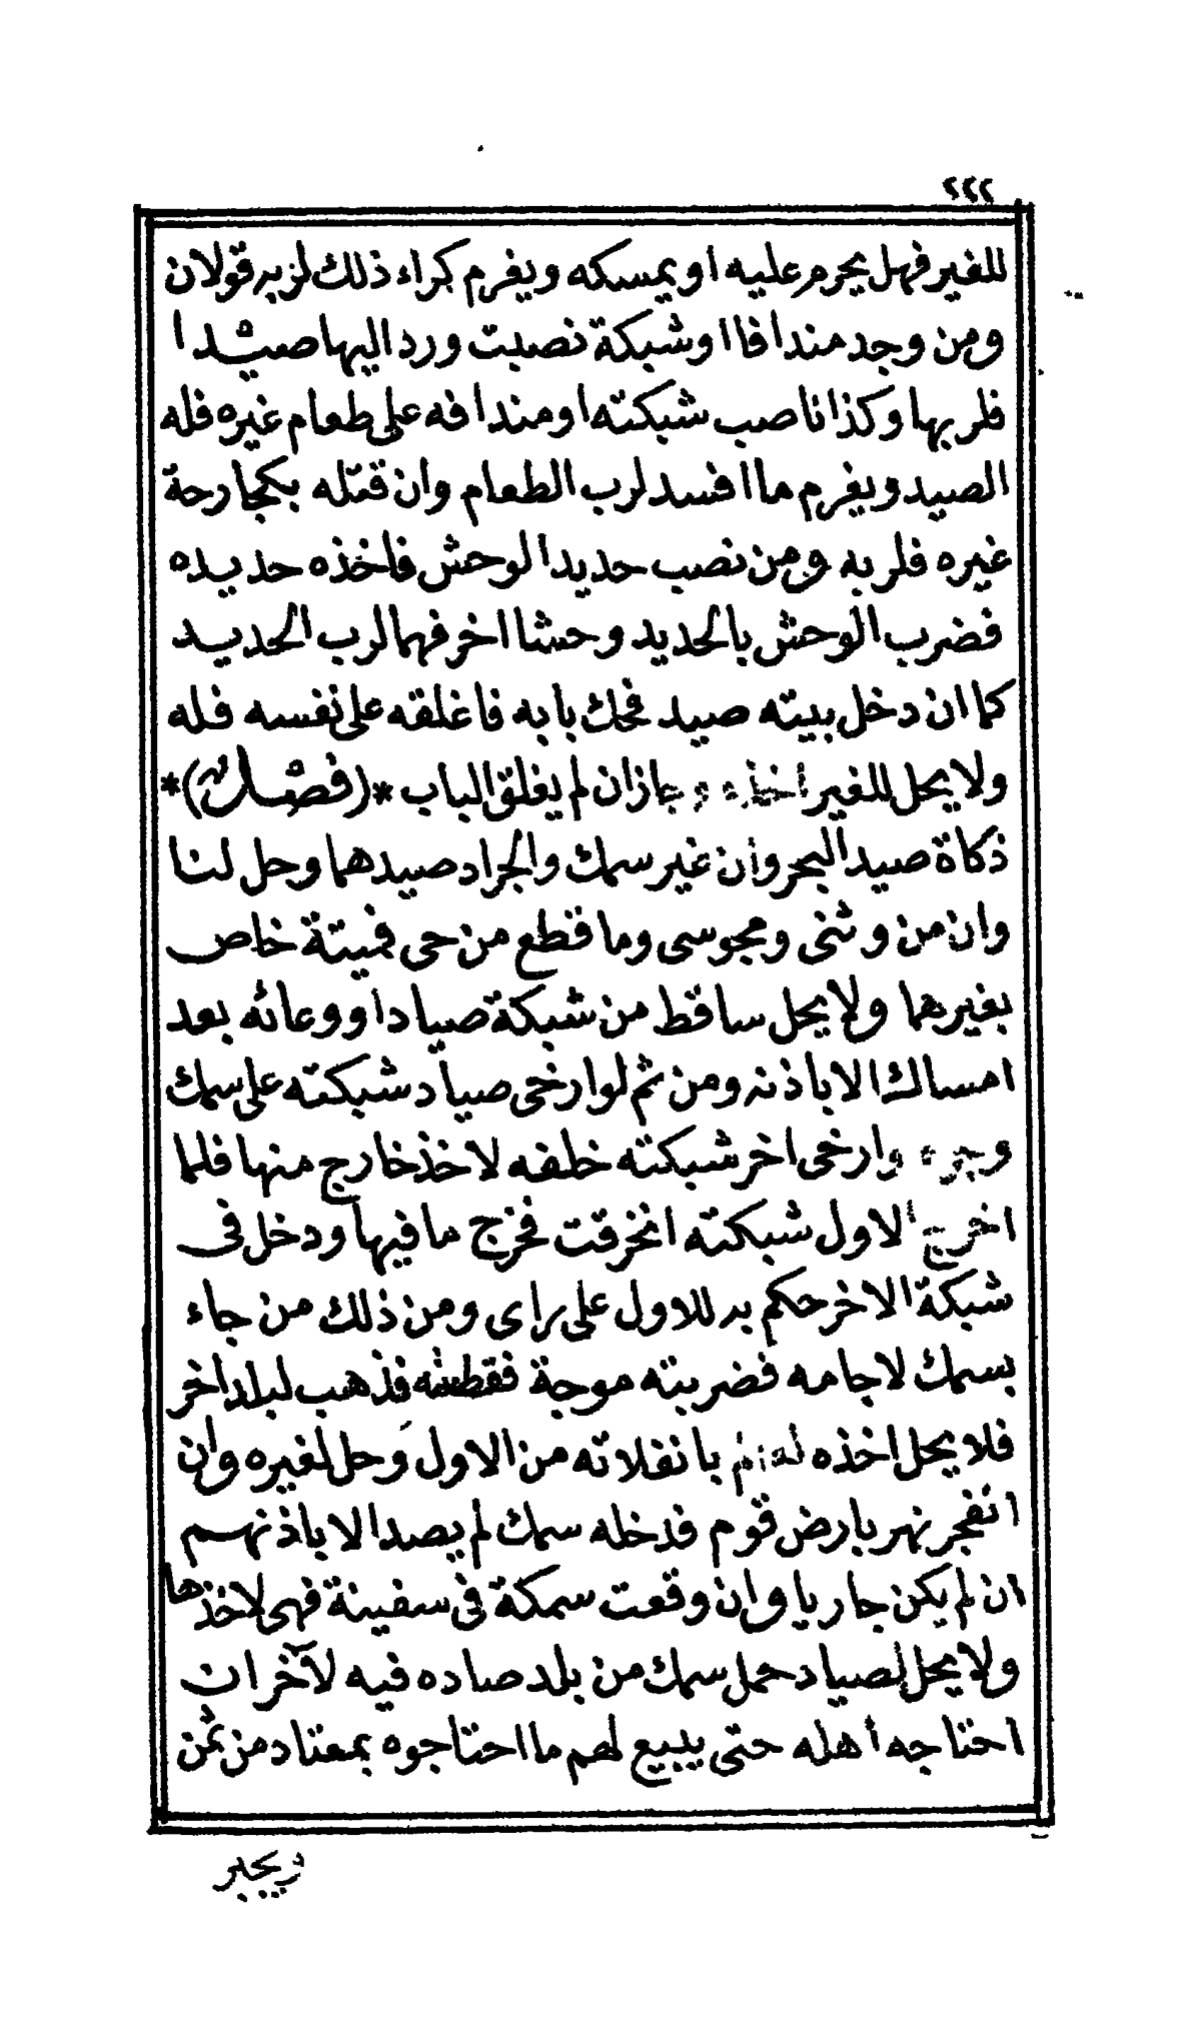 ٢٢٢
للغير فهل يحرم عليه او يمسكه ويغرم كراء ذلك لربه قولان
ومن وجد مندافا او شبكة نصبت ورد اليها صيدا
فلربها وكذا ناصب شبكته او مندافه على طعام غيره فله
الصيد ويغرم ما افسد لرب الطعام وان قتله بكجارحة
غيره فلربه ومن نصب حديدا لوحش فاخذه حديده
فضرب الوحش بالحديد وحشا اخر فهما لرب الحديد
كما ان دخل بيته صيد فحك بابه فاغلقه على نفسه فله
ولا يحل للغير اخذه وجاز ان لم يغلق الباب *(فصل)*
ذكاة صيد البحر وأن غير سمك والجراد صيدهما وحل لنا
وان من وثنى ومجوسى وما قطع من حى فميتة خاص
بغيرهما ولا يحل ساقط من شبكة صياد أو وعائه بعد
امساك الا باذنه ومن ثم لو ارخى صياد شبكته على سمك
وجره وارخى اخر شبكته خلفه لاخذ خارج منها فلما
اخرج الاول شبكته انخرقت فخرج ما فيها ودخل فى
شبكة الاخر حكم به للاول على راى ومن ذلك من جاء
بسمك لاجامه فضربته موجة فقطشه فذهب لبلد اخر
فلا يحل اخذه با نفلاته من الاول وحل لغيره وان
انفجر نهر بارض قوم فدخله سمك لم يصد الا باذنهم
ان لم يكن جاريا وان وقعت سمكة فى سفينة فهى لاخذها
ولا يحل لصياد حمل سمك من بلد صاده فيه لآخر ان
احتاجه أهله حتى يبيع لهم ما احتاجوه بمعتاد من ثمن
ويجبر